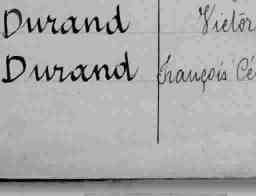 Durand Victor
Durand François Cé